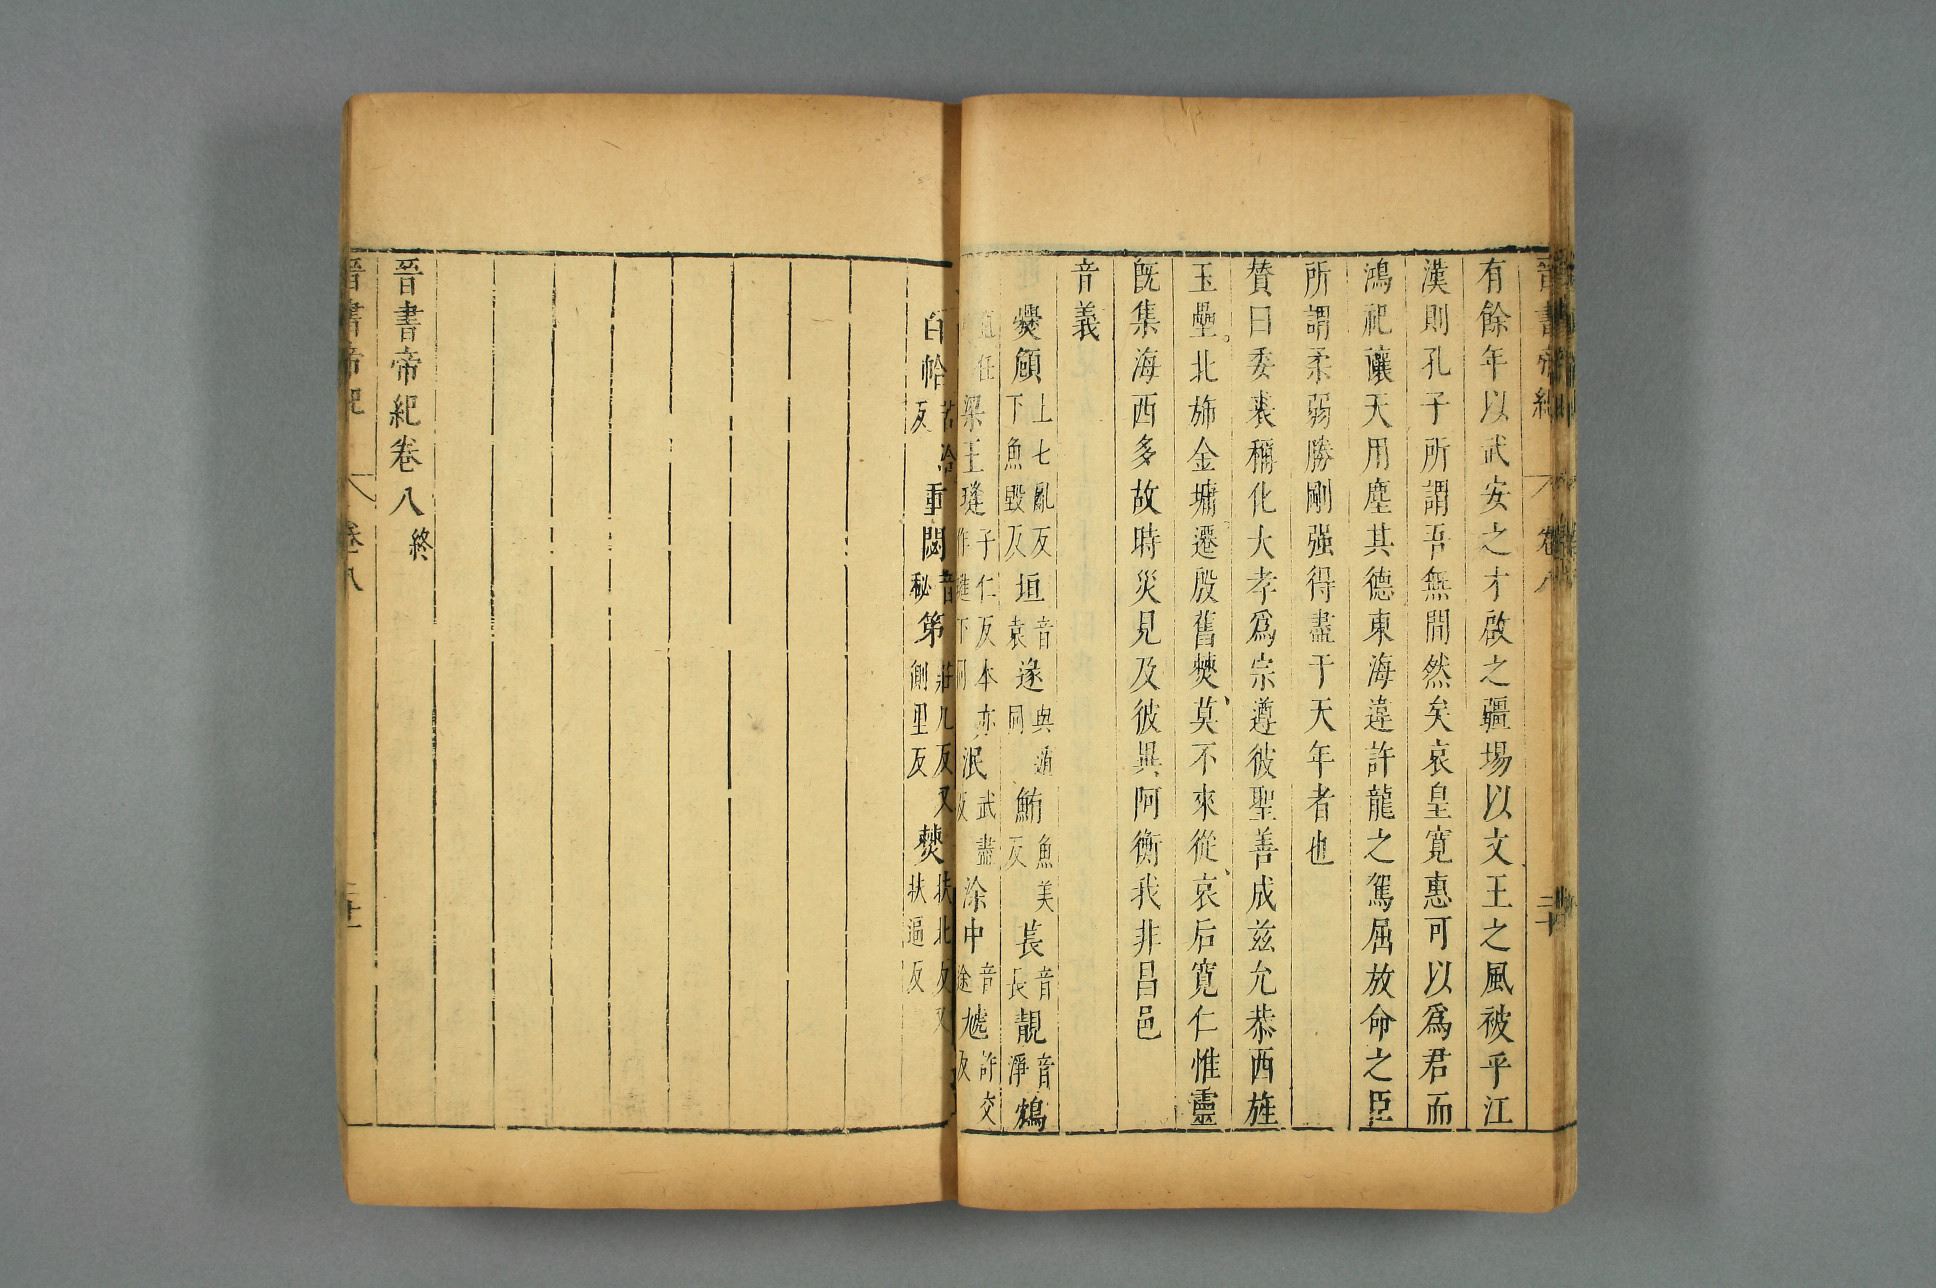 晉書帝紀 卷八 二十
有餘年以武安之才啟之疆場以文王之風被乎江
漢則孔子所謂吾無間然矣哀皇寬惠可以爲君而
鴻祀禳天用塵其德東海違許龍之駕屈放命之臣
所謂柔弱勝剛强得盡于天年者也
贊曰委裘稱化大孝爲宗遵彼聖善成兹允恭西旌
玉壘北斾金墉遷殷舊僰莫不來從哀后寬仁惟靈
旣集海西多故時災見及彼異阿衡我非昌邑
音義
爨頠上七亂反下魚毀反垣音袁遂與遁同鮪魚美反萇音長靚音淨鷞
梁王㻸子仁反本亦作璡下同泯武盡反涂中音途虓許交反
白帢苦洽反重閟音秘第莊几反又側里反僰扶北反又扶逼反
晉書帝紀卷八終
晉書帝紀 卷八